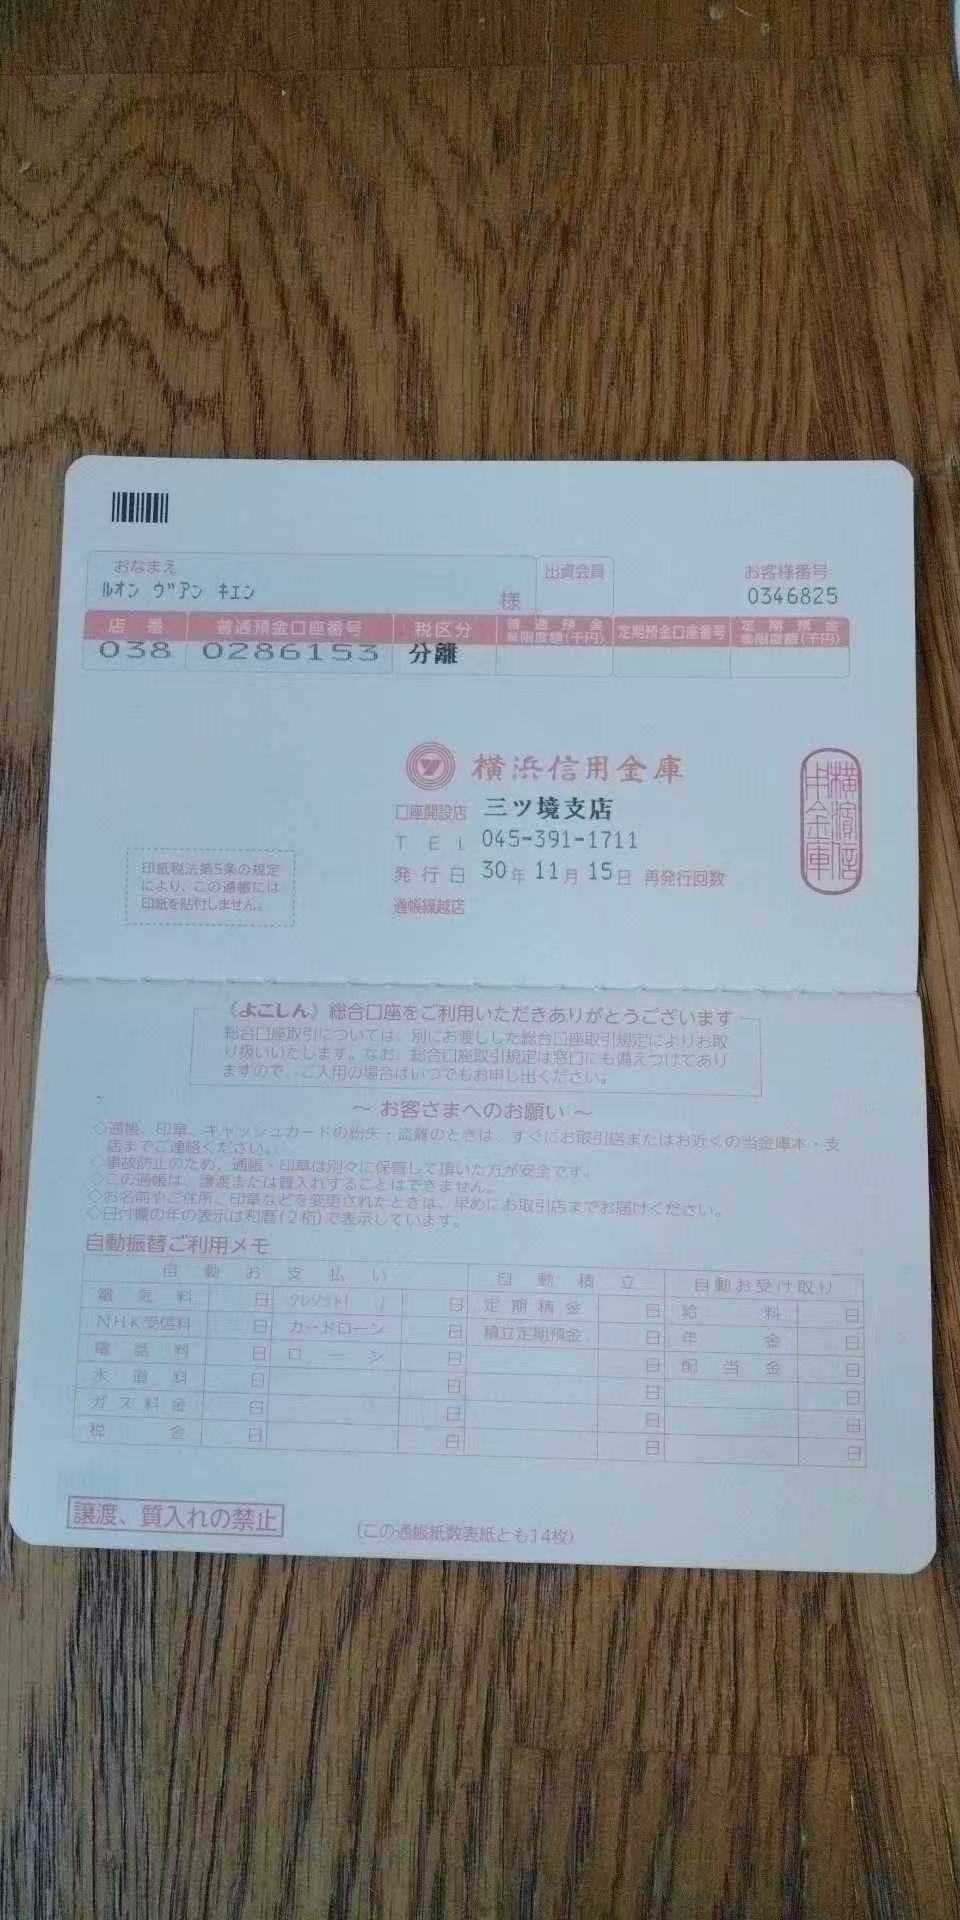 おなまえ
ルオン ヴアン キエン 様
出資会員
お客様番号
0346825
店番 普通預金口座番号 税区分 普通預金 限度額(千円) 定期預金口座番号 定期預金 限度額(千円)
038 0286153 分離
横浜信用金庫
口座開設店 三ツ境支店
TEL 045-391-1711
発行日 30年 11月 15日 再発行回数
通帳繰越店
印紙税法第5条の規定
により、この通帳には
印紙を貼付しません。
《よこしん》総合口座をご利用いただきありがとうございます
総合口座取引については、別にお渡しした総合口座取引規定によりお取
り扱いいたします。なお、総合口座取引規定は窓口にも備えつけてあり
ますので、ご入用の場合はいつでもお申し出ください。
～ お客さまへのお願い ～
◇通帳、印章、キャッシュカードの紛失・盗難のときは、すぐにお取引店またはお近くの当金庫本・支
店までご連絡ください。
◇事故防止のため、通帳・印章は別々に保管して頂いた方が安全です。
◇この通帳は、譲渡または質入れすることはできません。
◇お名前やご住所、印章などを変更されたときは、早めにお取引店までお届けください。
◇日付欄の年の表示は和暦(2桁)で表示しています。
自動振替ご利用メモ
自動お支払い 自動積立 自動お受け取り
電気料 日 クレジット( ) 日 定期積金 日 給料 日
NHK受信料 日 カードローン 日 積立定期預金 日 年金 日
電話料 日 ローン 日 日 配当金 日
水道料 日 日 日 日
ガス料金 日 日 日 日
税金 日 日 日 日
譲渡、質入れの禁止
(この通帳紙数表紙とも14枚)